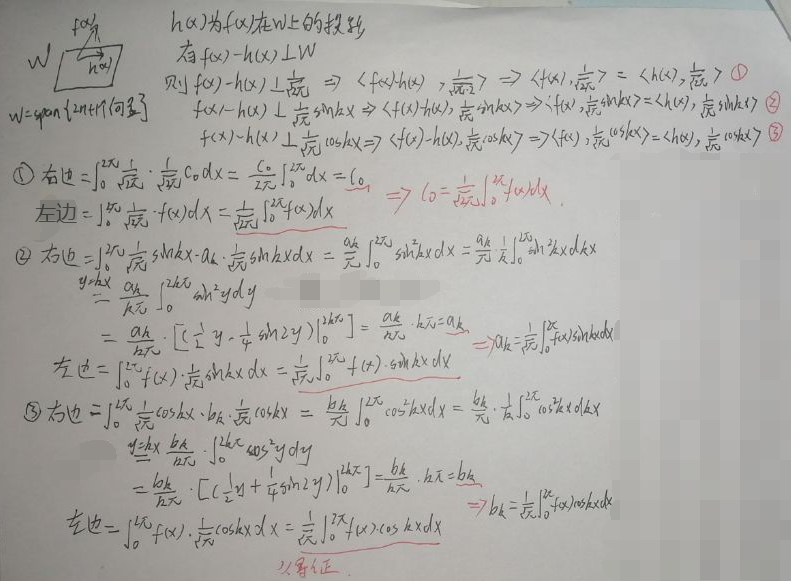 f(x)
W
h(x)
W=span{2n+1个向量}
h(x)为f(x)在W上的投影
有f(x)-h(x)⊥W
则f(x)-h(x)⊥1/√2π ⇒ <f(x)-h(x), 1/√2π> ⇒ <f(x), 1/√2π> = <h(x), 1/√2π> ①
f(x)-h(x)⊥1/√π sinkx ⇒ <f(x)-h(x), 1/√π sinkx> ⇒ <f(x), 1/√π sinkx> = <h(x), 1/√π sinkx> ②
f(x)-h(x)⊥1/√π coskx ⇒ <f(x)-h(x), 1/√π coskx> ⇒ <f(x), 1/√π coskx> = <h(x), 1/√π coskx> ③
① 右边=∫₀^2π 1/√2π · 1/√2π C₀dx = C₀/2π ∫₀^2π dx = C₀
左边=∫₀^2π 1/√2π · f(x)dx = 1/√2π ∫₀^2π f(x)dx ⇒ C₀ = 1/√2π ∫₀^2π f(x)dx.
② 右边=∫₀^2π 1/√π sinkx · aₖ · 1/√π sinkx dx = aₖ/π ∫₀^2π sin²kx dx = aₖ/π · 1/k ∫₀^2π sin²kx dkx
y=kx = aₖ/kπ ∫₀^2kπ sin²y dy
= aₖ/kπ · [(1/2 y - 1/4 sin2y)|₀^2kπ] = aₖ/kπ · kπ = aₖ ⇒ aₖ = 1/√π ∫₀^2π f(x)sinkxdx
左边=∫₀^2π f(x) · 1/√π sinkx dx = 1/√π ∫₀^2π f(x) · sinkx dx
③ 右边=∫₀^2π 1/√π coskx · bₖ · 1/√π coskx = bₖ/π ∫₀^2π cos²kxdx = bₖ/π · 1/k ∫₀^2π cos²kx dkx
y=kx = bₖ/kπ · ∫₀^2kπ cos²y dy
= bₖ/kπ · [(1/2 y + 1/4 sin2y)|₀^2kπ] = bₖ/kπ · kπ = bₖ ⇒ bₖ = 1/√π ∫₀^2π f(x)coskxdx
左边=∫₀^2π f(x) · 1/√π coskx dx = 1/√π ∫₀^2π f(x) · coskxdx
得证.